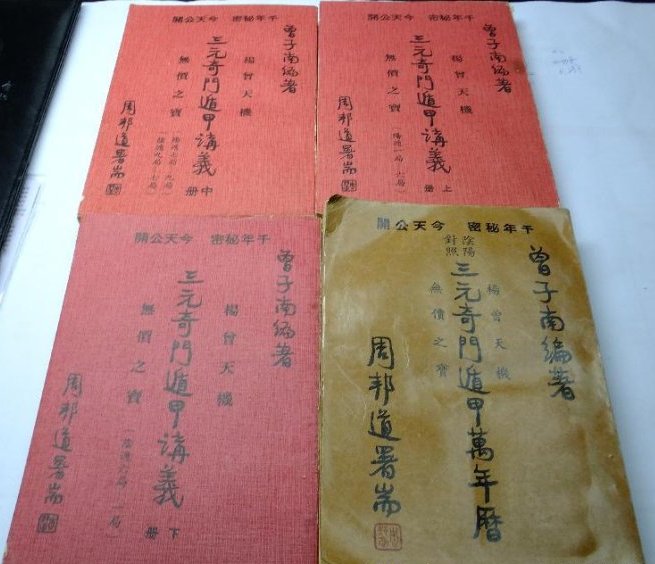 千年秘密 今天公開
曾子南編著
楊曾天機
三元奇門遁甲講義
中册
無價之寶
(陽遁七局—九局
陰遁九局—七局)
周邦道署耑
千年秘密 今天公開
曾子南編著
楊曾天機
三元奇門遁甲講義
上册
無價之寶
(陽遁一局—六局)
周邦道署耑
千年秘密 今天公開
曾子南編著
楊曾天機
三元奇門遁甲講義
下册
無價之寶
(陰遁六局—一局)
周邦道署耑
千年秘密 今天公開
曾子南編著
楊曾天機
陰陽
對照
三元奇門遁甲萬年曆
無價之寶
周邦道署耑